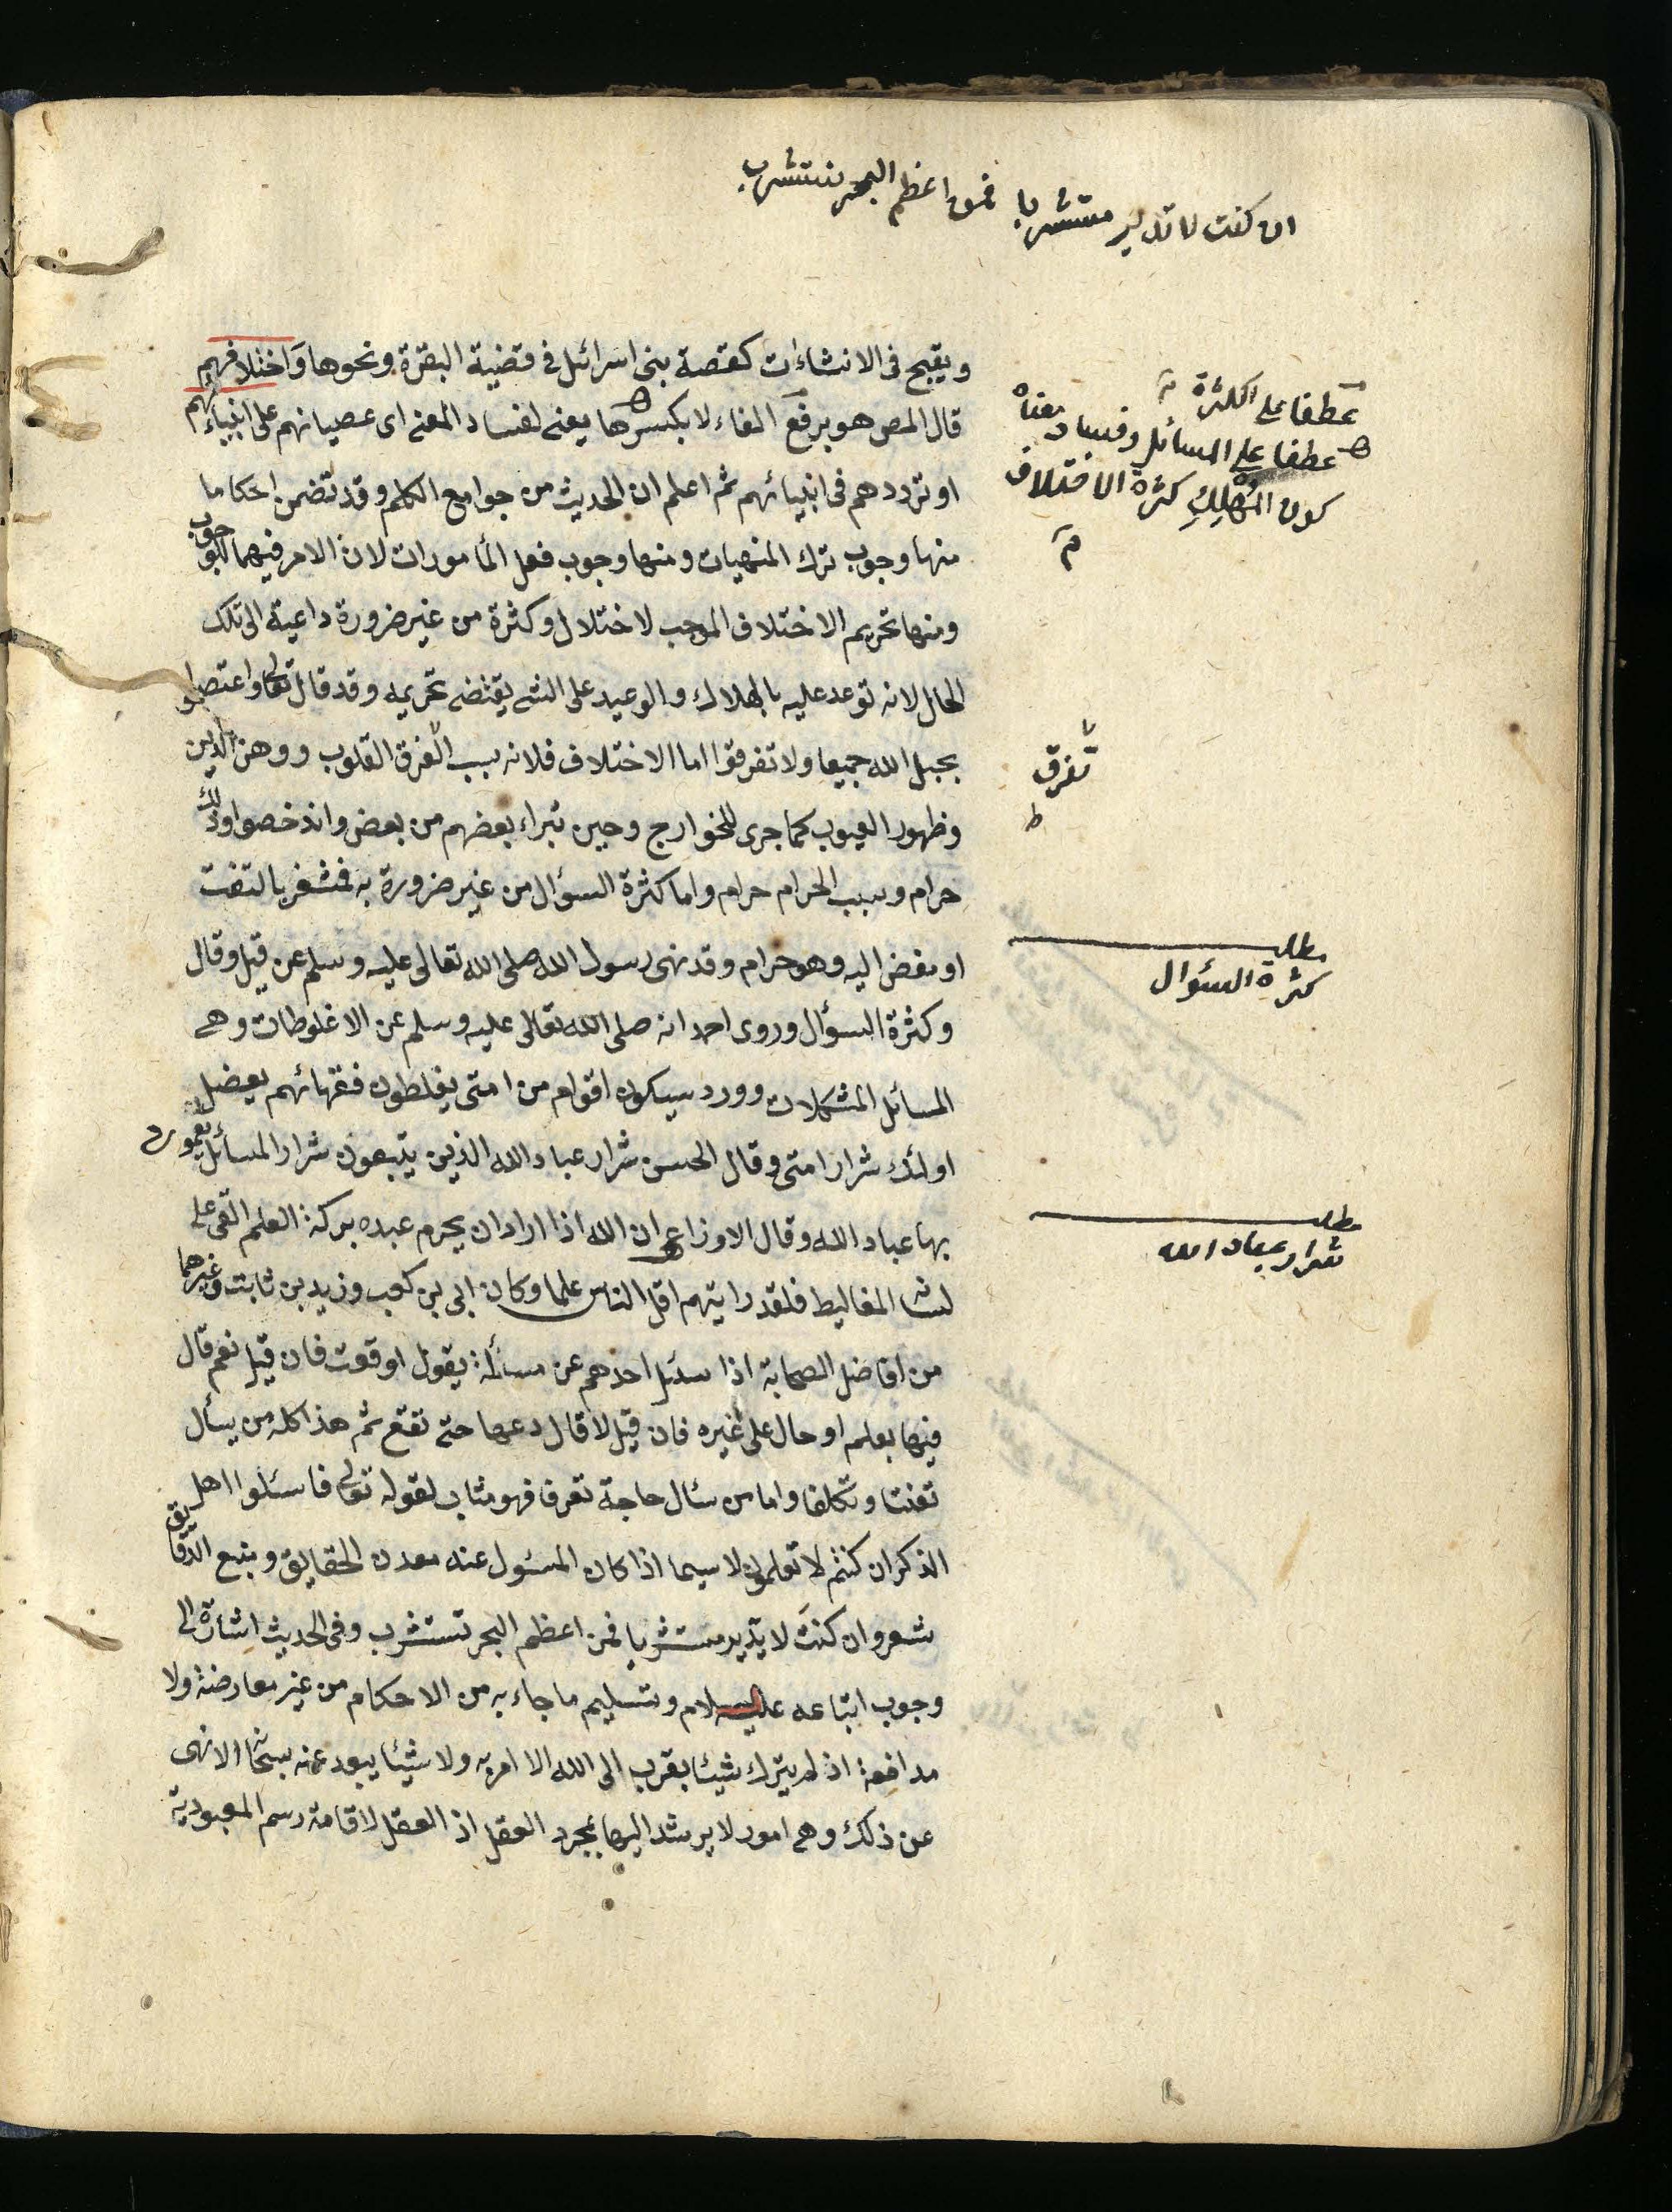 ان كنت لا تدلير مستشربا فمن اعظم البحر تستشرب
ويقبح فى الانشاءات كقصة بنى اسرائل فى قضية البقرة ونحوها وَاختلافهم
قال المص هو برفع الفاء لا بكسرها يعنى لفساد المعنى اى عصيانهم على انبيائهم
او ترددهم فى انبيائهم ثم اعلم ان الحديث من جوامع الكلم وقد تضمن احكاما
منها وجوب ترك المنهيات ومنها وجوب فعل المأمورات لان الامر فيهما للوجوب
ومنها تحريم الاختلاف الموجب لاختلال وكثرة من غير ضرورة داعية الى تلك
الحال لانه توعد عليه بالهلاك والوعيد على الشئ يقتضى تحريمه وقد قال تعالى واعتصموا
بحبل الله جميعا ولا تفرقوا اما الاختلاف فلانه سبب الفرق القلوب ووهن الدين
وظهور العيوب كما جرى للخوارج وحين تبراء بعضهم من بعض وانذخصوا وذلك
حرام وسبب الحرام حرام واما كثرة السؤال من غير ضرورة به فمشعر بالتفت
او مفض اليه وهو حرام وقد نهى رسول الله صلى الله تعالى عليه وسلم عن قيل وقال
وكثرة السؤال وروى احمد انه صلى الله تعالى عليه وسلم عن الاغلوطات وهى
المسائل المشكلات وورد سيكون اقوام من امتى يغلطون فقهائهم بعضل
اولئك شرار امتى وقال الحسن شرار عباد الله الذين يتبعون شرار المسائل يعمون
بها عباد الله وقال الاوزاعى ان الله اذا اراد ان يحرم عبده بركة العلم القى على
لسانه المغاليط فلقد رايتهم اقل الناس علما وكان ابى بن كعب وزيد بن ثابت وغيرهما
من افاضل الصحابة اذا سئل احدهم عن مسألة يقول اوقعت فان قيل نعم قال
فيها بعلم او حال على غيره فان قيل لا قال دعها حتى تقع ثم هذا كله من يسأل
تعنتا وتكلفا واما من سئال حاجة تعرفا فهو مثاب لقوله تعالى فاسئلوا اهل
الذكر ان كنتم لا تعلمون لا سيما اذا كان المسئول عنه معدن الحقايق ومنبع الدقايق
شعر وان كنتَ لا بدّير مستشربا فمن اعظم البحر تستشرب وفى الحديث اشارة الى
وجوب اتباعه عليه السلام وتسليم ما جاء به من الاحكام من غير معارضة ولا
مدافعة اذ لم يترك شيئا يقرب الى الله الا امر به ولا شيئا يبعد عنه سبحانه الا نهى
عن ذلك وهى امور لا يرشد اليها بمجرد العقل اذ العقل لاقامة رسم المعبودية
عطفا على الكثرة
عطفا على المسائل وفساد معناه
كون المُهْلِكِ كثرة الاختلاف
م
تفرق
ط
مطلب
كثرة السؤال
مطلب
شرار عباد الله